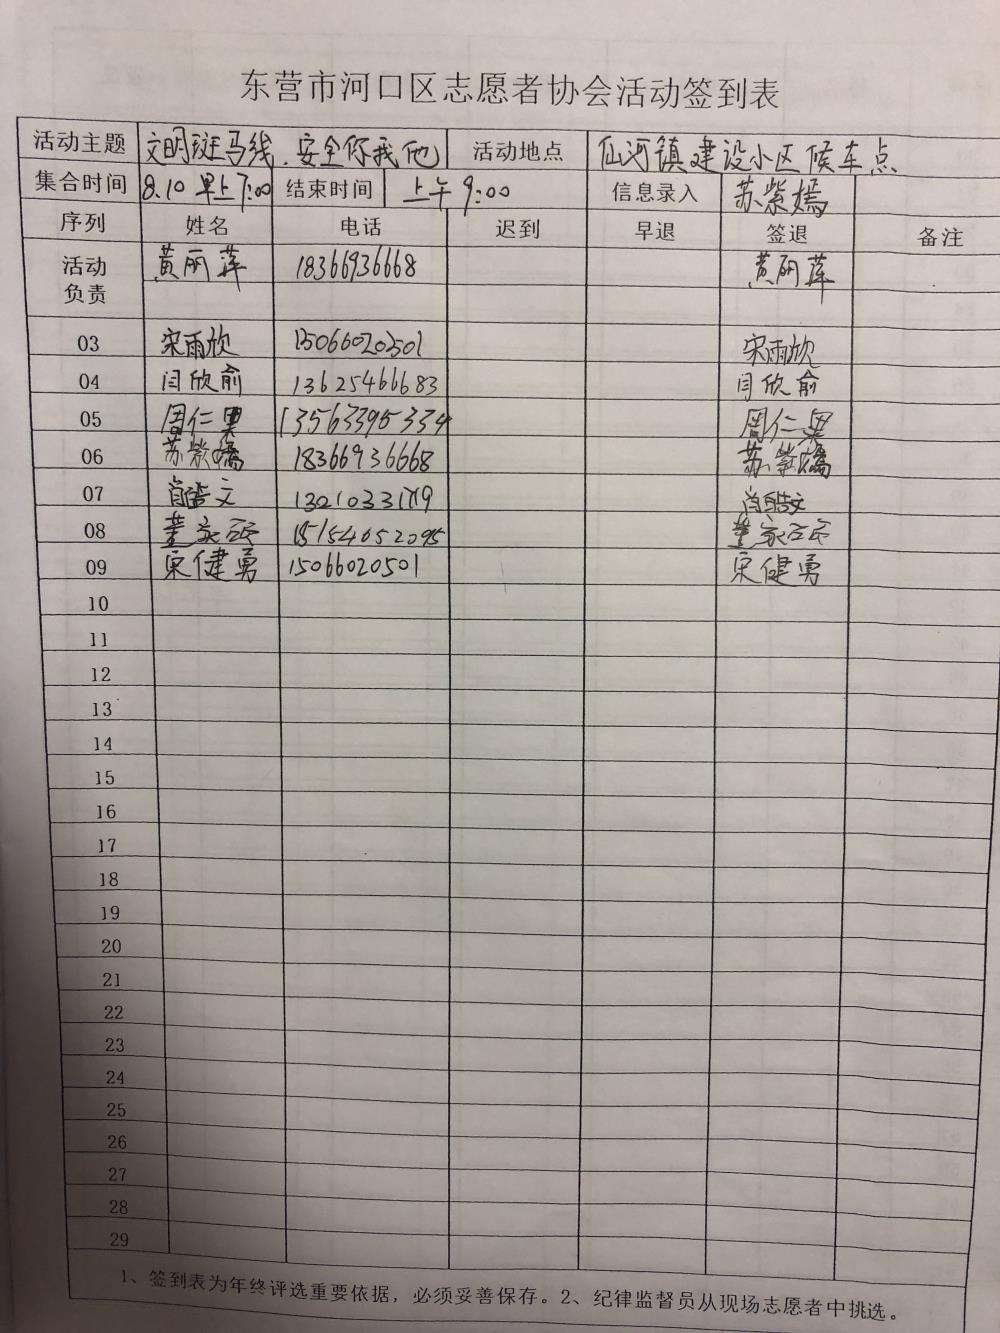 东营市河口区志愿者协会活动签到表
活动主题 文明斑马线.安全你我他 活动地点 仙河镇建设小区候车点
集合时间 8.10 早上7:00 结束时间 上午9:00 信息录入 苏紫嫣
序列 姓名 电话 迟到 早退 签退 备注
活动负责 黄丽萍 18366936668 黄丽萍
03 宋雨欣 15066020501 宋雨欣
04 闫欣俞 13625466683 闫欣俞
05 周仁果 13563395334 周仁果
06 苏紫嫣 18366936668 苏紫嫣
07 皓文 皓文
08 董家 15154652095 董家
09 宋健勇 15066020501 宋健勇
10
11
12
13
14
15
16
17
18
19
20
21
22
23
24
25
26
27
28
29
1、签到表为年终评选重要依据，必须妥善保存。2、纪律监督员从现场志愿者中挑选。